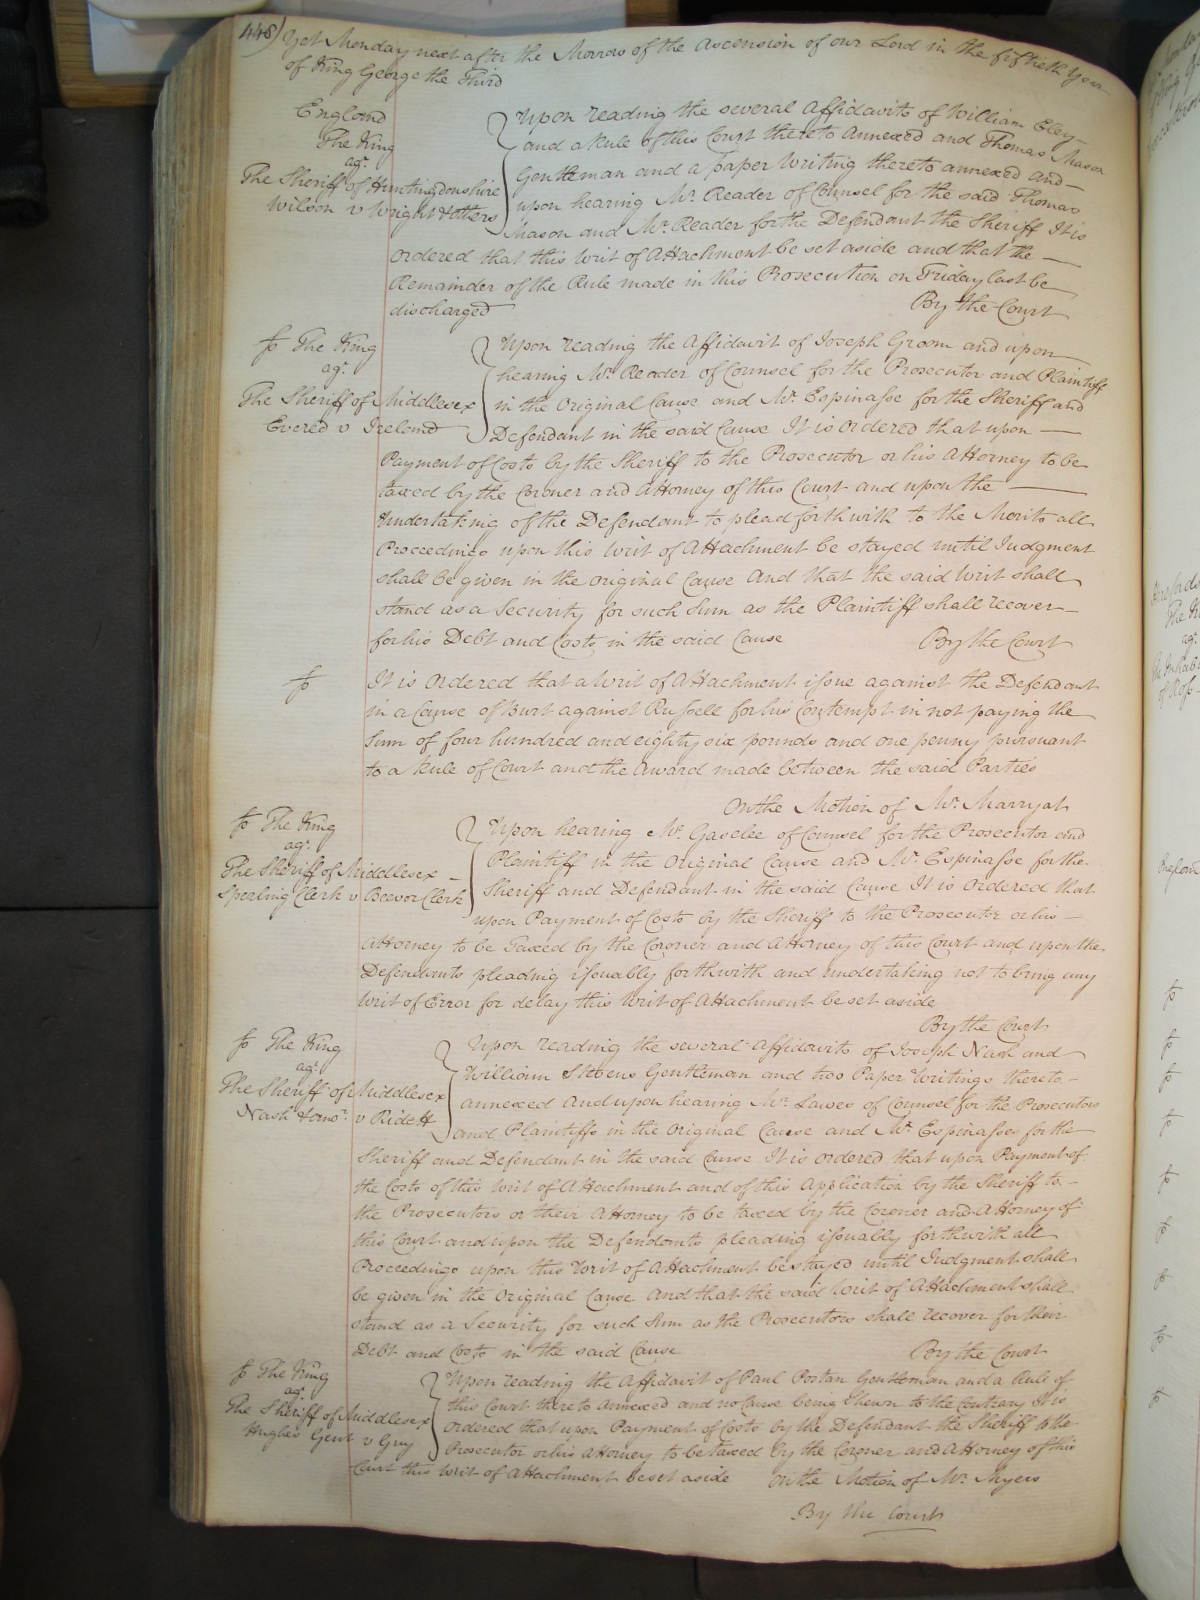 448) Yet Monday next after the Morrow of the Ascension of our Lord in the fiftieth Year
of King George the Third
England
The King
agt
The Sheriff of Huntingdonshire
Wilson v Wright & others
Upon reading the several Affidavits of William Eley
and a Rule of this Court thereto annexed and Thomas Mason
Gentleman and a paper Writing thereto annexed and
upon hearing Mr. Reader of Counsel for the said Thomas
Mason and Mr. Reader for the Defendant the Sheriff It is
Ordered that this Writ of Attachment be set aside and that the
Remainder of the Rule made in this Prosecution on Friday last be
discharged By the Court
The King
agt
The Sheriff of Middlesex
Evered v Ireland
Upon reading the Affidavit of Joseph Groom and upon
hearing Mr. Reader of Counsel for the Prosecutor and Plaintiff
in the Original Cause and Mr. Espinasse for the Sheriff and
Defendant in the said Cause It is Ordered that upon
Payment of Costs by the Sheriff to the Prosecutor or his Attorney to be
taxed by the Coroner and Attorney of this Court and upon the
Undertaking of the Defendant to plead forthwith to the Merits all
Proceedings upon this Writ of Attachment be stayed until Judgment
shall be given in the Original Cause And that the said Writ shall
stand as a Security for such Sum as the Plaintiff shall recover
for his Debt and Costs in the said Cause By the Court
It is Ordered that a Writ of Attachment issue against the Defendant
in a Cause of Burt against Russell for his Contempt in not paying the
Sum of four hundred and eighty six pounds and one penny pursuant
to a Rule of Court and the Award made between the said Parties
On the Motion of Mr. Marryat
The King
agt
The Sheriff of Middlesex
Sperling Clerk v Beevor Clerk
Upon hearing Mr. Gaselee of Counsel for the Prosecutor and
Plaintiff in the Original Cause and Mr. Espinasse for the
Sheriff and Defendant in the said Cause It is Ordered that
upon Payment of Costs by the Sheriff to the Prosecutor or his
Attorney to be Taxed by the Coroner and Attorney of this Court and upon the
Defendants pleading issuably forthwith and undertaking not to bring any
Writ of Error for delay this Writ of Attachment be set aside
By the Court
The King
agt
The Sheriff of Middlesex
Nash & anor. v
Upon reading the several Affidavits of Joseph Nash and
William Stevens Gentleman and two Paper Writings thereto
annexed And upon hearing Mr. Lawes of Counsel for the Prosecutors
and Plaintiffs in the Original Cause and Mr. Espinasse for the
Sheriff and Defendant in the said Cause It is Ordered that upon Payment of
the Costs of this Writ of Attachment and of this Application by the Sheriff to
the Prosecutors or their Attorney to be taxed by the Coroner and Attorney of
this Court and upon the Defendants pleading issuably forthwith all
Proceedings upon this Writ of Attachment be stayed until Judgment shall
be given in the Original Cause And that the said Writ of Attachment shall
stand as a Security for such Sum as the Prosecutors shall recover for their
Debt and Costs in the said Cause By the Court
The King
agt
The Sheriff of Middlesex
Hughes Gent v Guy
Upon reading the Affidavit of Paul Postan Gentleman and a Rule of
this Court thereto annexed and no Cause being Shewn to the Contrary It is
Ordered that upon Payment of Costs by the Defendant the Sheriff to the
Prosecutor or his Attorney to be taxed by the Coroner and Attorney of this
Court this Writ of Attachment be set aside On the Motion of Mr. Myers
By the Court